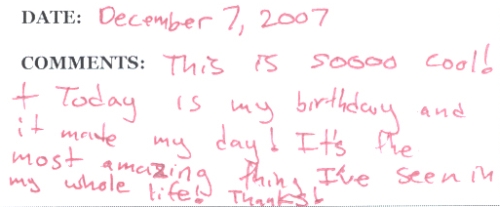 DATE: December 7, 2007
COMMENTS: This is soooo cool!
+ Today is my birthday and
it made my day! It's the
most amazing thing I've seen in
my whole life! Thanks!